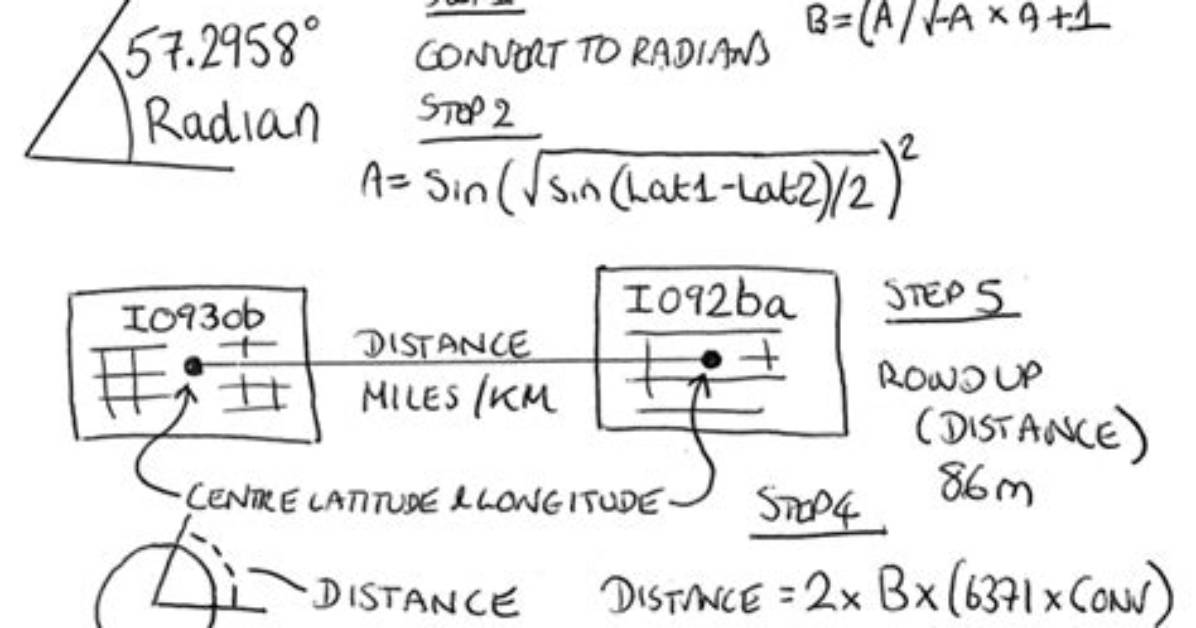 57.2958°
Radian
CONVERT TO RADIANS
STEP 2
A = Sin(√Sin(Lat1-Lat2)/2)²
B=(A/√-A × A+1
IO93ob
DISTANCE
MILES/KM
IO92ba
STEP 5
ROUND UP
(DISTANCE)
86m
CENTRE LATITUDE & LONGITUDE
STEP 4
DISTANCE
DISTANCE = 2x Bx(6371xCONV)